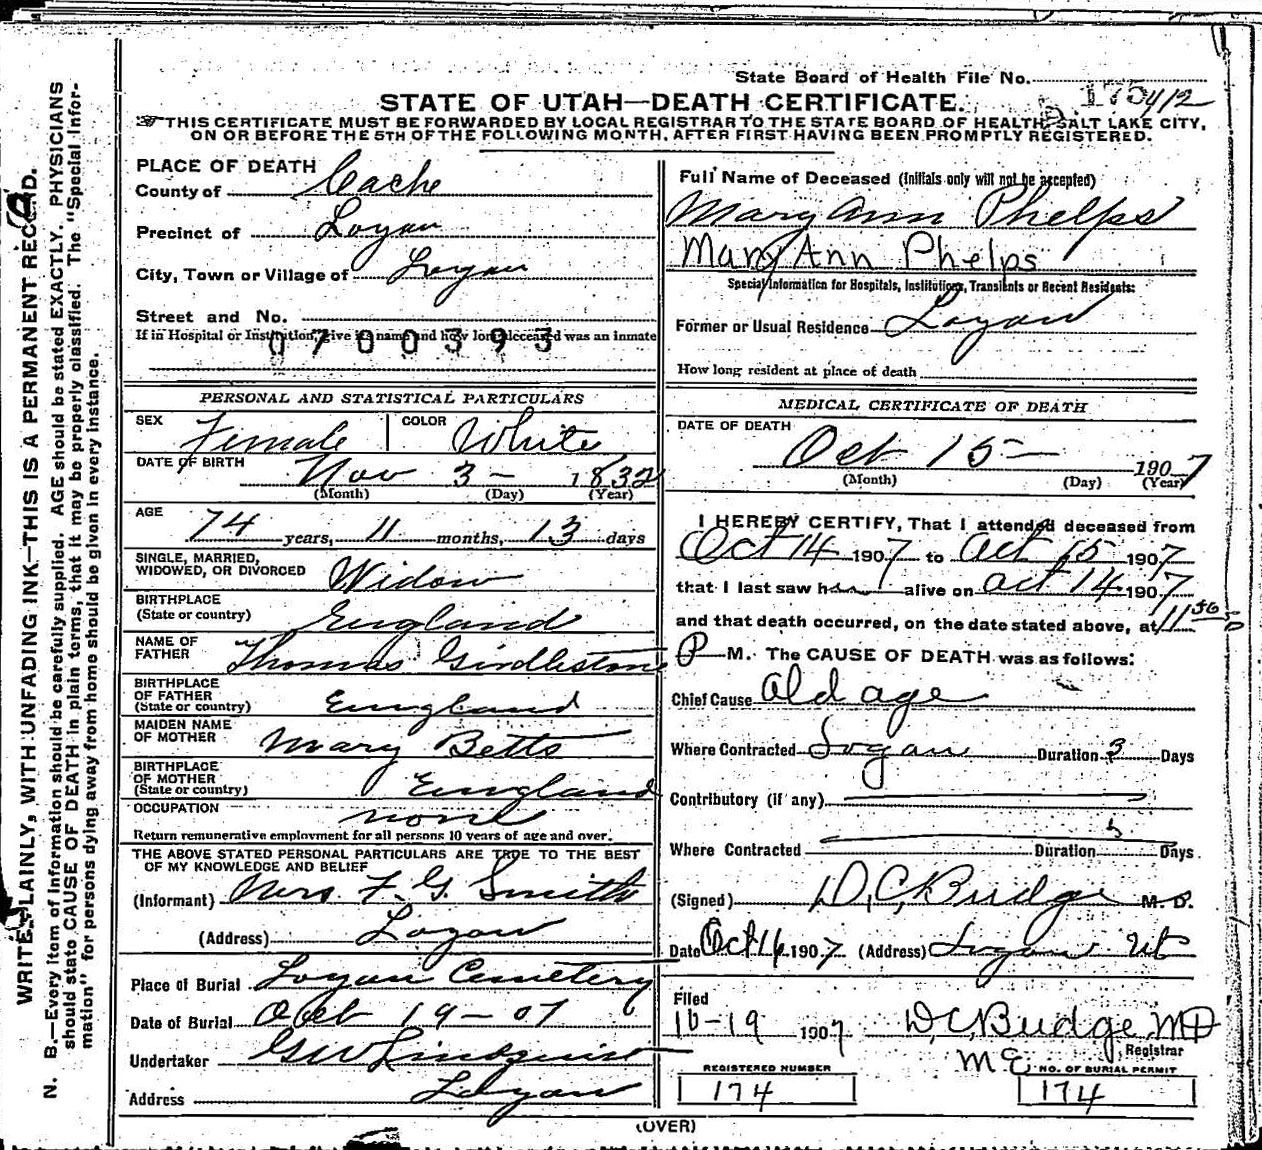 State Board of Health File No. 175 412
STATE OF UTAH—DEATH CERTIFICATE.
THIS CERTIFICATE MUST BE FORWARDED BY LOCAL REGISTRAR TO THE STATE BOARD OF HEALTH, SALT LAKE CITY,
ON OR BEFORE THE 5TH OF THE FOLLOWING MONTH, AFTER FIRST HAVING BEEN PROMPTLY REGISTERED.
WRITE PLAINLY, WITH UNFADING INK—THIS IS A PERMANENT RECORD.
N. B.—Every item of Information should be carefully supplied. AGE should be stated EXACTLY. PHYSICIANS
should state CAUSE OF DEATH in plain terms, that it may be properly classified. The "Special Infor-
mation" for persons dying away from home should be given in every instance.
PLACE OF DEATH
County of Cache
Precinct of Logan
City, Town or Village of Logan
Street and No.
If in Hospital or Institution, give its name and how long deceased was an inmate
0700393
PERSONAL AND STATISTICAL PARTICULARS
SEX Female COLOR White
DATE OF BIRTH Nov 3 - 1832
(Month) (Day) (Year)
AGE 74 years, 11 months, 13 days
SINGLE, MARRIED,
WIDOWED, OR DIVORCED Widow
BIRTHPLACE
(State or country) England
NAME OF
FATHER Thomas Girdlestone
BIRTHPLACE
OF FATHER
(State or country) England
MAIDEN NAME
OF MOTHER Mary Betts
BIRTHPLACE
OF MOTHER
(State or country) England
OCCUPATION none
Return remunerative employment for all persons 10 years of age and over.
THE ABOVE STATED PERSONAL PARTICULARS ARE TRUE TO THE BEST
OF MY KNOWLEDGE AND BELIEF
(Informant) Mrs F. G. Smith
(Address) Logan
Place of Burial Logan Cemetery
Date of Burial Oct 19 - 07
Undertaker GW Lindquist
Address Logan
Full Name of Deceased (Initials only will not be accepted)
Mary Ann Phelps
Mary Ann Phelps
Special Information for Hospitals, Institutions, Transients or Recent Residents:
Former or Usual Residence Logan
How long resident at place of death
MEDICAL CERTIFICATE OF DEATH
DATE OF DEATH
Oct 15 — 1907
(Month) (Day) (Year)
I HEREBY CERTIFY, That I attended deceased from
Oct 14 1907 to Oct 15 1907
that I last saw her alive on Oct 14 1907
and that death occurred, on the date stated above, at 11 30
P M. The CAUSE OF DEATH was as follows:
Chief Cause Old age
Where Contracted Logan Duration 3 Days
Contributory (if any)
Where Contracted Duration Days
(Signed) D, C, Budge M. D.
Date Oct 16 1907 (Address) Logan Ut
Filed
10-19 1907 D, C Budge, MD
Registrar
McE
REGISTERED NUMBER
174
NO. OF BURIAL PERMIT
174
(OVER)